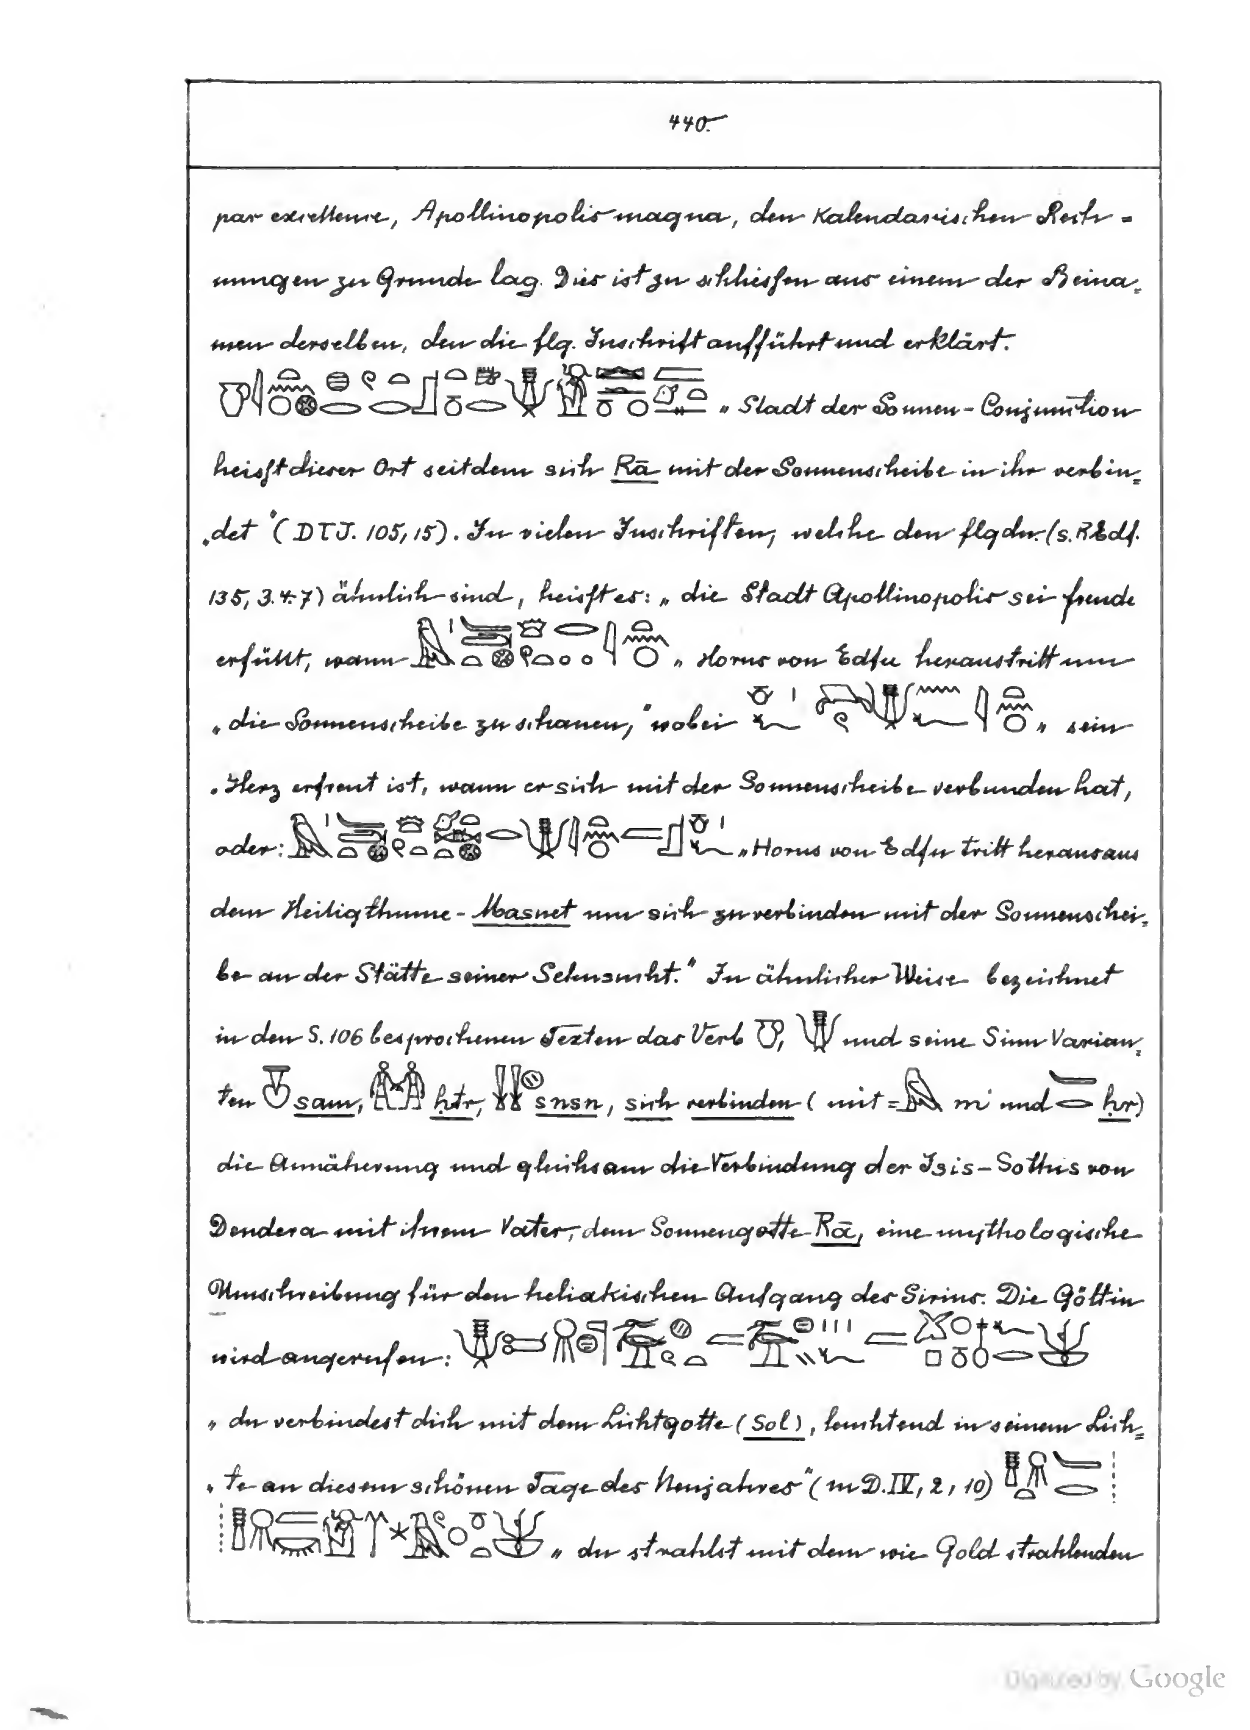 440.
par excellence, Apollinopolis magna, den Kalendarischen Rech-
nungen zu Grunde lag. Dies ist zu schliessen aus einem der Beina-
men derselben, den die flg. Inschrift aufführt und erklärt.
„Stadt der Sonnen-Conjunction
heisst dieser Ort seitdem sich Rā mit der Sonnenscheibe in ihr verbin-
„det“ (DTJ. 105,15). In vielen Inschriften, welche den flgdn. (s. REdf.
135, 3.4.7) ähnlich sind, heisst es: „die Stadt Apollinopolis sei freude
erfüllt, wann „Horus von Edfu heraustritt um
„die Sonnenscheibe zu schauen,“ wobei „sein
„Herz erfreut ist, wann er sich mit der Sonnenscheibe verbunden hat,
oder: „Horus von Edfu tritt heraus aus
dem Heiligthume-Masnet um sich zu verbinden mit der Sonnenschei-
be an der Stätte seiner Sehnsucht.“ In ähnlicher Weise bezeichnet
in den S. 106 besprochenen Texten das Verb , und seine Sinn Varian-
ten sam, ḥtr, snsn, sich verbinden (mit = m und ḥr)
die Annäherung und gleichsam die Verbindung der Isis-Sothis von
Dendera mit ihrem Vater, dem Sonnengotte Rā, eine mythologische
Umschreibung für den heliakischen Aufgang des Sirius. Die Göttin
wird angerufen:
„du verbindest dich mit dem Lichtgotte (Sol), leuchtend in seinem Lich-
„te an diesem schönen Tage des Neujahres“ (m D. IV, 2, 10)
„du strahlst mit dem wie Gold strahlenden
Digitized by Google